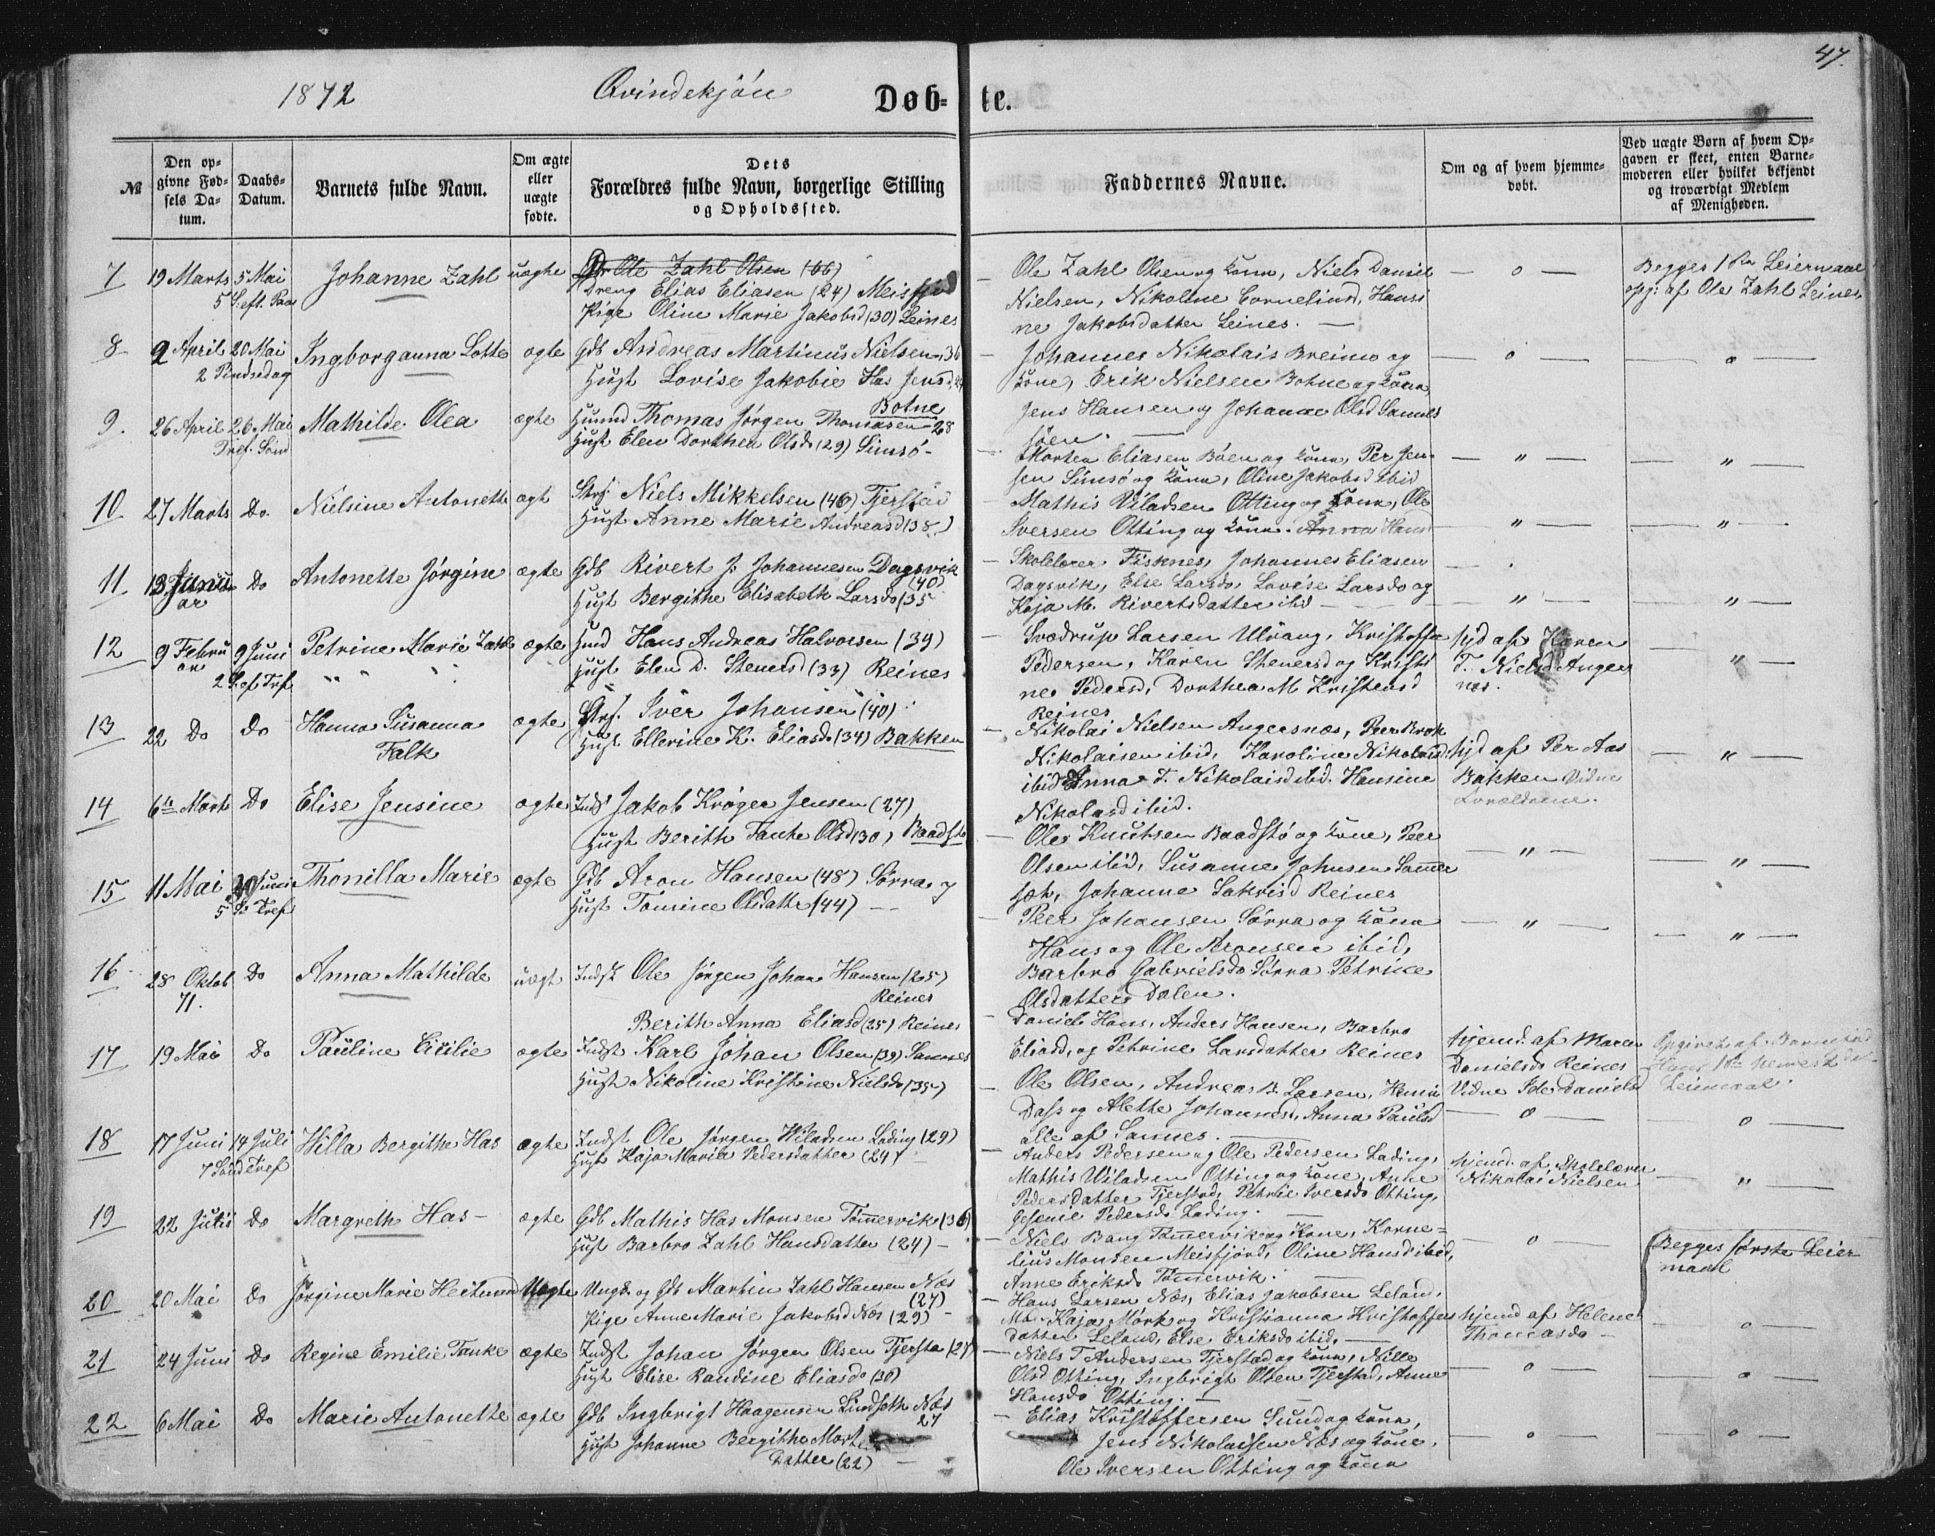 47.
1872 Qvindekjön Døb- te.
№
Den op-
givne Fød-
sels Da-
tum.
Daabs-
Datum.
Barnets fulde Navn.
Om ægte
eller
uægte
fødte.
Dets
Forældres fulde Navn, borgerlige Stilling
og Opholdssted.
Faddernes Navne.
Om og af hvem hjemme-
døbt.
Ved uægte Børn af hvem Op-
gaven er skeet, enten Barne-
moderen eller hvilket bekjendt
og troværdigt Medlem
af Menigheden.
7 19 Marts 5 Mai Johanne Zahl uægte
Ole Zahl Olsen (66)
Dreng Elias Eliasen (24) Meisfjord
Pige Oline Marie Jakobsd (30) Leines
Ole Zahl Olsen og kone, Niels Daniel
Nielsen, Nikoline Corneliusd, Hansi
ne Jakobsdatter Leines. —
— o —
Begges 1ste Leiermaal
opg: af Ole Zahl Leines
8 2 April 20 Mai Ingborganna Lotte ægte
2 Pindsedag
Gdb Andreas Martinus Nielsen 36
Hust Lovise Jakobie Has Jensd
Botne
Johannes Nikolais Breimo og
kone, Erik Nielsen Botne og kone
Jens Hansen og Johanne Olsd Sannes
søen. —
— o — — o —
9. 26 April 26 Mai Mathilde Olea ægte
Tref. Sönd
Huusmd Thomas Jørgen Thomasen 28
Hust Elen Dorthea Olsd (29) Simsø-
Morten Eliasen Böen og kone, Per Jen-
sen Simsø og kone, Oline Jakobsd ibid
— " — — " —
10 27 Marts Do. Nielsine Antonette ægt
Strf Niels Mikkelsen (46) Tjerstad
Hust Anne Marie Andreasd (38)
Mathis Viladsen Otting og kone, Ole
Iversen Otting og kone. Anna Hans
— " — — " —
11 13 Janu Do Antonette Jørgine ægte
ar
Gdb Rivert J. Johannesen Dagsvik
(40)
Hust Bergithe Elisabeth Larsd (35
Skolelærer Fisknes, Johannes Eliasen
Dagsvik, Else Larsd, Lovise Larsd og
Kaja M. Rivertsdatter ibid
— " — — " —
12 9 Febru 9 Juni Petrine Marie Zahl ægte
ar 2 S. ef Tref
Hmd Hans Andreas Halvorsen (39)
Hust Elen D. Stenersd (33) Reines
Svedrup Larsen Ulvang, Kristoffer
Pedersen, Karen Stenersd og Kristi
ne Pedersd, Dorthea M Kristensd
Reines
Hjd af Karen
T. Nielsd Anger
nes.
— " —
13 22 Do Do Hanna Susanna ægte
Falk
Strf. Iver Johansen (40)
Hust Ellerine K. Eliasd (34) Bakken
Nikolai Nielsen Angersnæs, Peer Krok
Nikolaisen ibid, Karoline Nikolaisd
ibid Anna T. Nikolaisd ibid. Hansine
Nikolaisd ibid.
Hjd af Per Aas
Bakken Vidne
Forældrene.
— " —
14 6te Marts Do Elise Jensine ægte
Inds Jakob Krøger Jensen (27)
Hust Berith Tanke Olsd (30) Baadstø
Ole Knutsen Baadstø og kone, Peer
Olsen ibid, Susanne Johnsen Sommer
søh, Johanne Sakrisd Reines
— " — — " —
15 11 Mai 30 Juni Thonilla Marie ægte
5 S. Tref
Gdb Aron Hansen (48) Sørra
Hust Tomine Olsdatter (44) —
Peer Johansen Sørra og kone
Hans og Ole Aronsen ibid,
Barbro Gabrielsd Sørra Petrine
Olsdatter Dalen.
— " — — " —
16 28 Oktob Do Anna Mathilde uægt
71.
Indst Ole Jørgen Johan Hansen (25)
Reines
Berith Anna Eliasd (25) Reines
Daniel Hans, Anders Hansen, Barbro
Eliasd, og Petrine Larsdatter Reines
Hjemd. af Maren
Danielsd Reines
Vidne Ide Danielsd
Opgivet af Barnefad
Leiermaal.
17 19 Mai Do Pauline Cicilie ægte
Indst Karl Johan Olsen (39) Sannes
Hust Nikoline Kristine Nielsd (35)
Ole Olsen, Andreas B. Larsen, Henrik
Dass og Alethe Johannesd, Anna Paulsd
alle af Sannes. —
— o — — o —
18 17 Juni 14 Juli Hilla Bergitte Has ægte
7 Sönd Tref
Indst Ole Jørgen Viladsen Lading (29)
Hust Kaja Maria Pedersdatter (24)
Anders Pedersen og Ole Pedersen Lading,
Mathis Viladsen Otting og kone, Anne
Pedersdatter Tjerstad, Petrie Iversd Otting,
Pedersd Lading. —
Hjemd. af Skolelærer
Nikolai Nielsen
— " —
19 22 Julii Do Margreth Has- ægte
Gdb Mathis Has Monsen Tømmervik (36)
Hust Barbro Zahl Hansdatter (24) —
Niels Bang Tømmervik og Kone, Korne=
lius Monsen Meisfjord, Oline Hansd ibid,
Anne Eriksd Tømmervik. —
— o —
20 20 Mai Do Jørgine Marie Heitmann Uægte
Ungk. og Gdb Martin Zahl Hansen Næs
(27)
Pige Anne Marie Jakobsd Næs (29) —
Hans Larsen Næs, Elias Jakobsen Leland,
Kaja Mørk og Kristianna Kristoffers
datter Leland, Else Eriksd ibid. —
Hjemd af Helene
Thomasd —
Begges første Leier
maal
— o —
21 24 Juni Do Regine Emilie Tanke ægte
Indst Johan Jørgen Olsen Tjersta (27)
Hust Elise Randine Eliasd (30)
Niels T Andersen Tjerstad og kone, Nille
Olsd Otting, Ingbrigt Olsen Tjerstad, Anne
Hansd Otting. —
— o — — o —
22 6 Mai Do Marie Antonette ægte
Gdb Ingbrigt Haagensen Lindseth Næs
27
Hust Johanne Bergitte Mort
Datter (22) —
Elias Kristoffersen Sund og kone,
Jens Nikolaisen Næs og kone,
Ole Iversen Otting og kone
— o — — o —